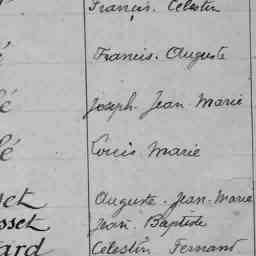 Francis. Celestin
é Francis. Auguste
lé Joseph. Jean. Marie
lé Louis Marie
set Auguste. Jean. Marie
sset Jean. Baptiste
ard Celestin Fernand